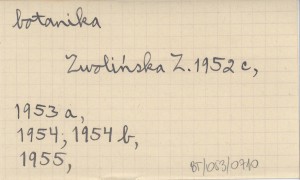 botanika
Zwolińska Z. 1952 c,
1953 a,
1954, 1954 b,
1955,
BT/053/0710